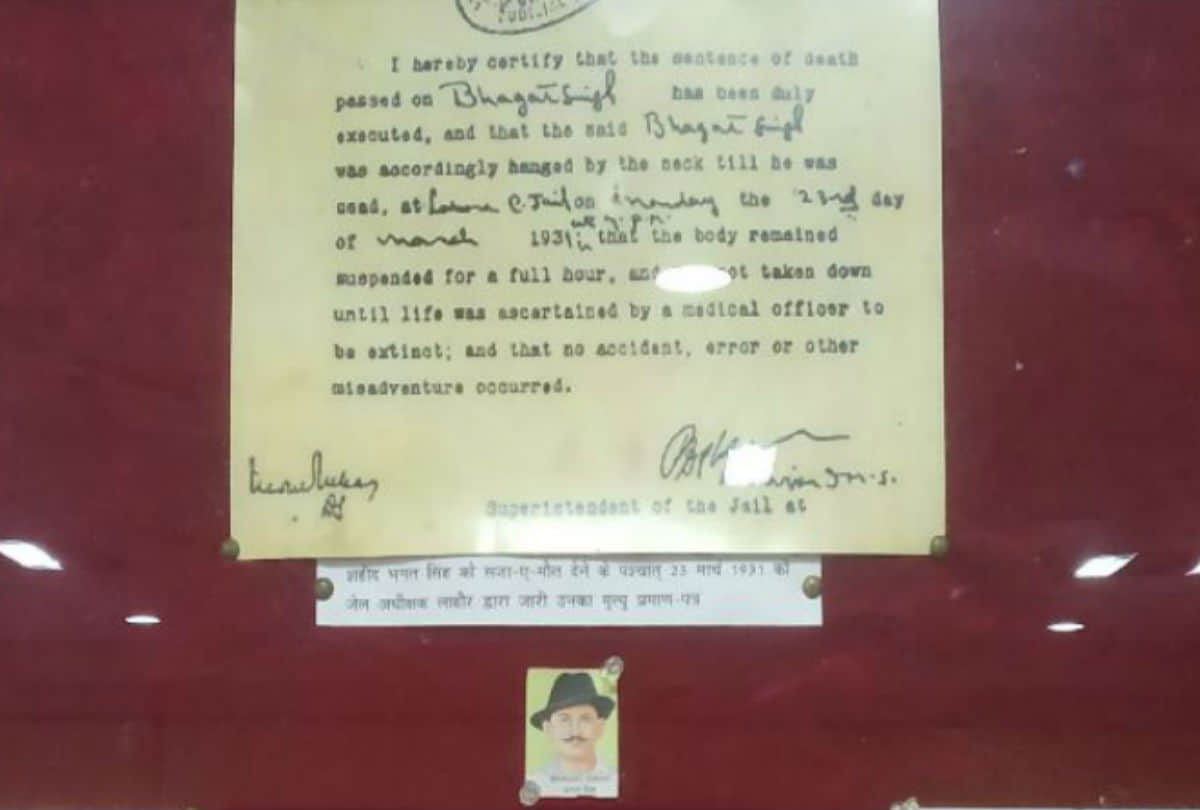 JUDICIAL
I hereby certify that the sentence of death
passed on Bhagat Singh has been duly
executed, and that the said Bhagat Singh
was accordingly hanged by the neck till he was
dead, at Lahore C. Jail on Monday the 23rd day
of March 1931 that the body remained
suspended for a full hour, and taken down
until life was ascertained by a medical officer to
be extinct; and that no accident, error or other
misadventure occurred.
I.M.S.
Superintendent of the Jail at
शहीद भगत सिंह को सजा-ए-मौत देने के पश्चात् 23 मार्च 1931 को
जेल अधीक्षक लाहौर द्वारा जारी उनका मृत्यु प्रमाण-पत्र